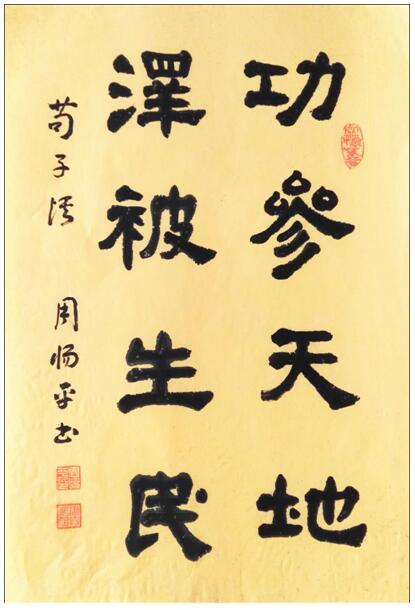 功參天地
澤被生民
荀子語 周惕平书